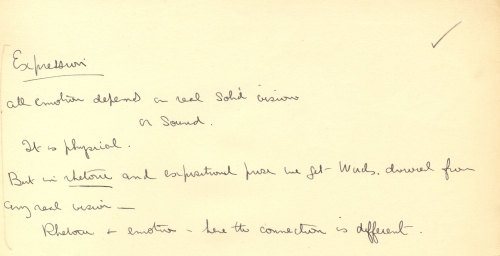 Expression
all emotion depends on real solid vision
or sound.
It is physical.
But in rhetoric and expositional prose we get words, divorced from
any real vision —
Rhetoric & emotion - here the connection is different.